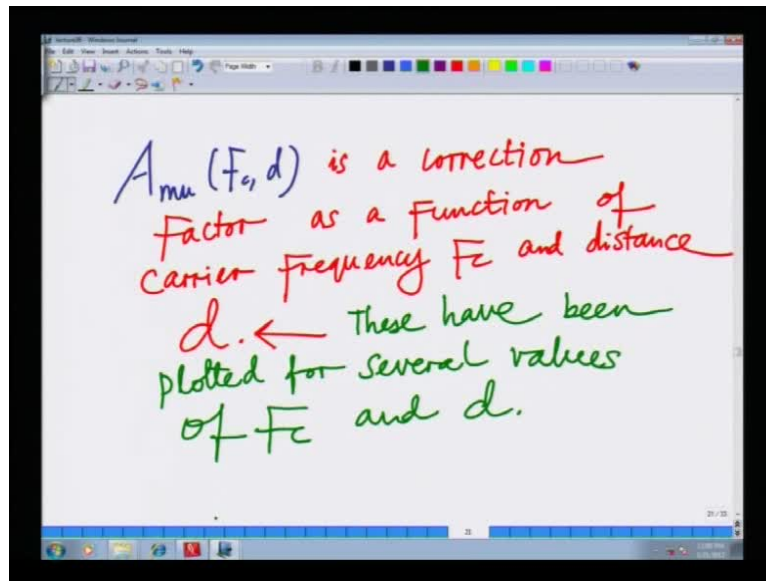 lecture08 - Windows Journal
File Edit View Insert Actions Tools Help
Page Width
A_mu (Fc, d) is a correction
Factor as a Function of
carrier frequency Fc and distance
d. ← These have been
plotted for several values
of Fc and d.
21 / 35
21